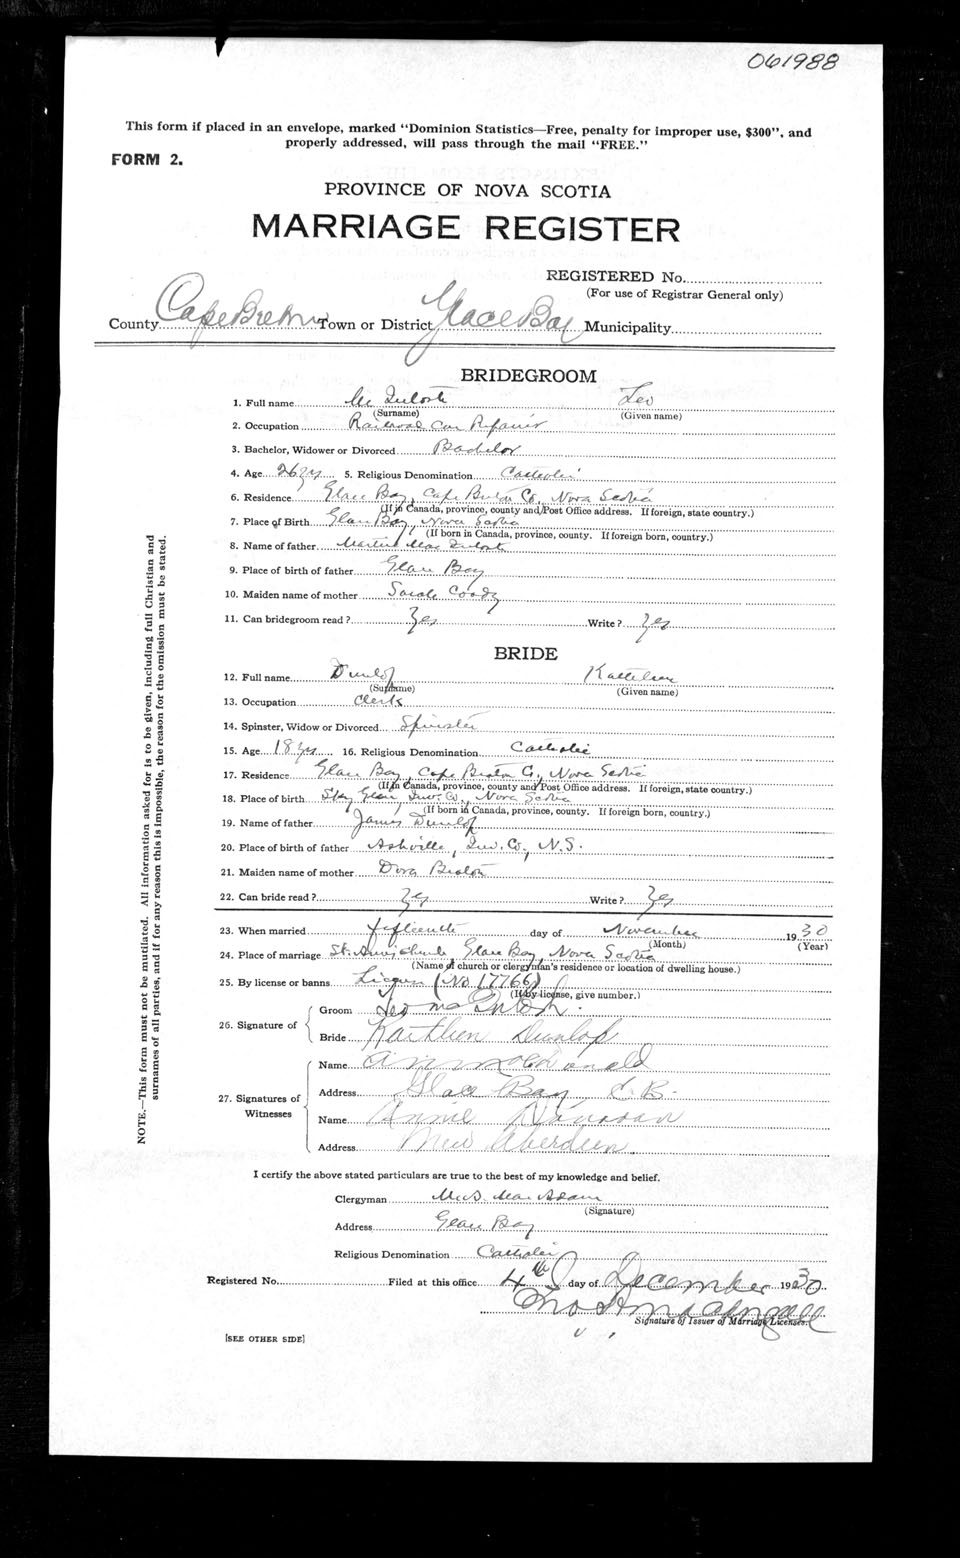 061988
This form if placed in an envelope, marked "Dominion Statistics—Free, penalty for improper use, $300", and
properly addressed, will pass through the mail "FREE."
FORM 2.
PROVINCE OF NOVA SCOTIA
MARRIAGE REGISTER
REGISTERED No.
(For use of Registrar General only)
County Cape Breton Town or District Glace Bay Municipality
BRIDEGROOM
1. Full name Mc Intosh Leo
(Surname) (Given name)
2. Occupation Railroad Car Repairer
3. Bachelor, Widower or Divorced Bachelor
4. Age 26 yrs 5. Religious Denomination Catholic
6. Residence Glace Bay, Cape Breton Co., Nova Scotia
(If in Canada, province, county and Post Office address. If foreign, state country.)
7. Place of Birth Glace Bay, Nova Scotia
(If born in Canada, province, county. If foreign born, country.)
8. Name of father Martin Mac Intosh
9. Place of birth of father Glace Bay
10. Maiden name of mother Sarah Coady
11. Can bridegroom read? Yes Write? Yes
BRIDE
12. Full name Dunlop Kathleen
(Surname) (Given name)
13. Occupation Clerk
14. Spinster, Widow or Divorced Spinster
15. Age 18 yrs 16. Religious Denomination Catholic
17. Residence Glace Bay, Cape Breton Co., Nova Scotia
(If in Canada, province, county and Post Office address. If foreign, state country.)
18. Place of birth Sky Glen Inv. Co., Nova Scotia
(If born in Canada, province, county. If foreign born, country.)
19. Name of father James Dunlop
20. Place of birth of father Ashville, Inv. Co., N.S.
21. Maiden name of mother Dora Beaton
22. Can bride read? Yes Write? Yes
23. When married fifteenth day of November 1930
(Month) (Year)
24. Place of marriage St. Anns church Glace Bay, Nova Scotia
(Name of church or clergyman's residence or location of dwelling house.)
25. By license or banns License (No 17766)
(If by license, give number.)
26. Signature of Groom Leo McIntosh.
Bride Kathleen Dunlop
27. Signatures of Witnesses Name McDonald
Address Glace Bay C.B.
Name Annie
Address New Aberdeen
I certify the above stated particulars are true to the best of my knowledge and belief.
Clergyman Mac Adam
(Signature)
Address Glace Bay
Religious Denomination Catholic
Registered No. Filed at this office 4th day of December 1930
Signature of Issuer of Marriage Licenses.
[SEE OTHER SIDE]
NOTE.—This form must not be mutilated. All information asked for is to be given, including full Christian and
surnames of all parties, and if for any reason this is impossible, the reason for the omission must be stated.